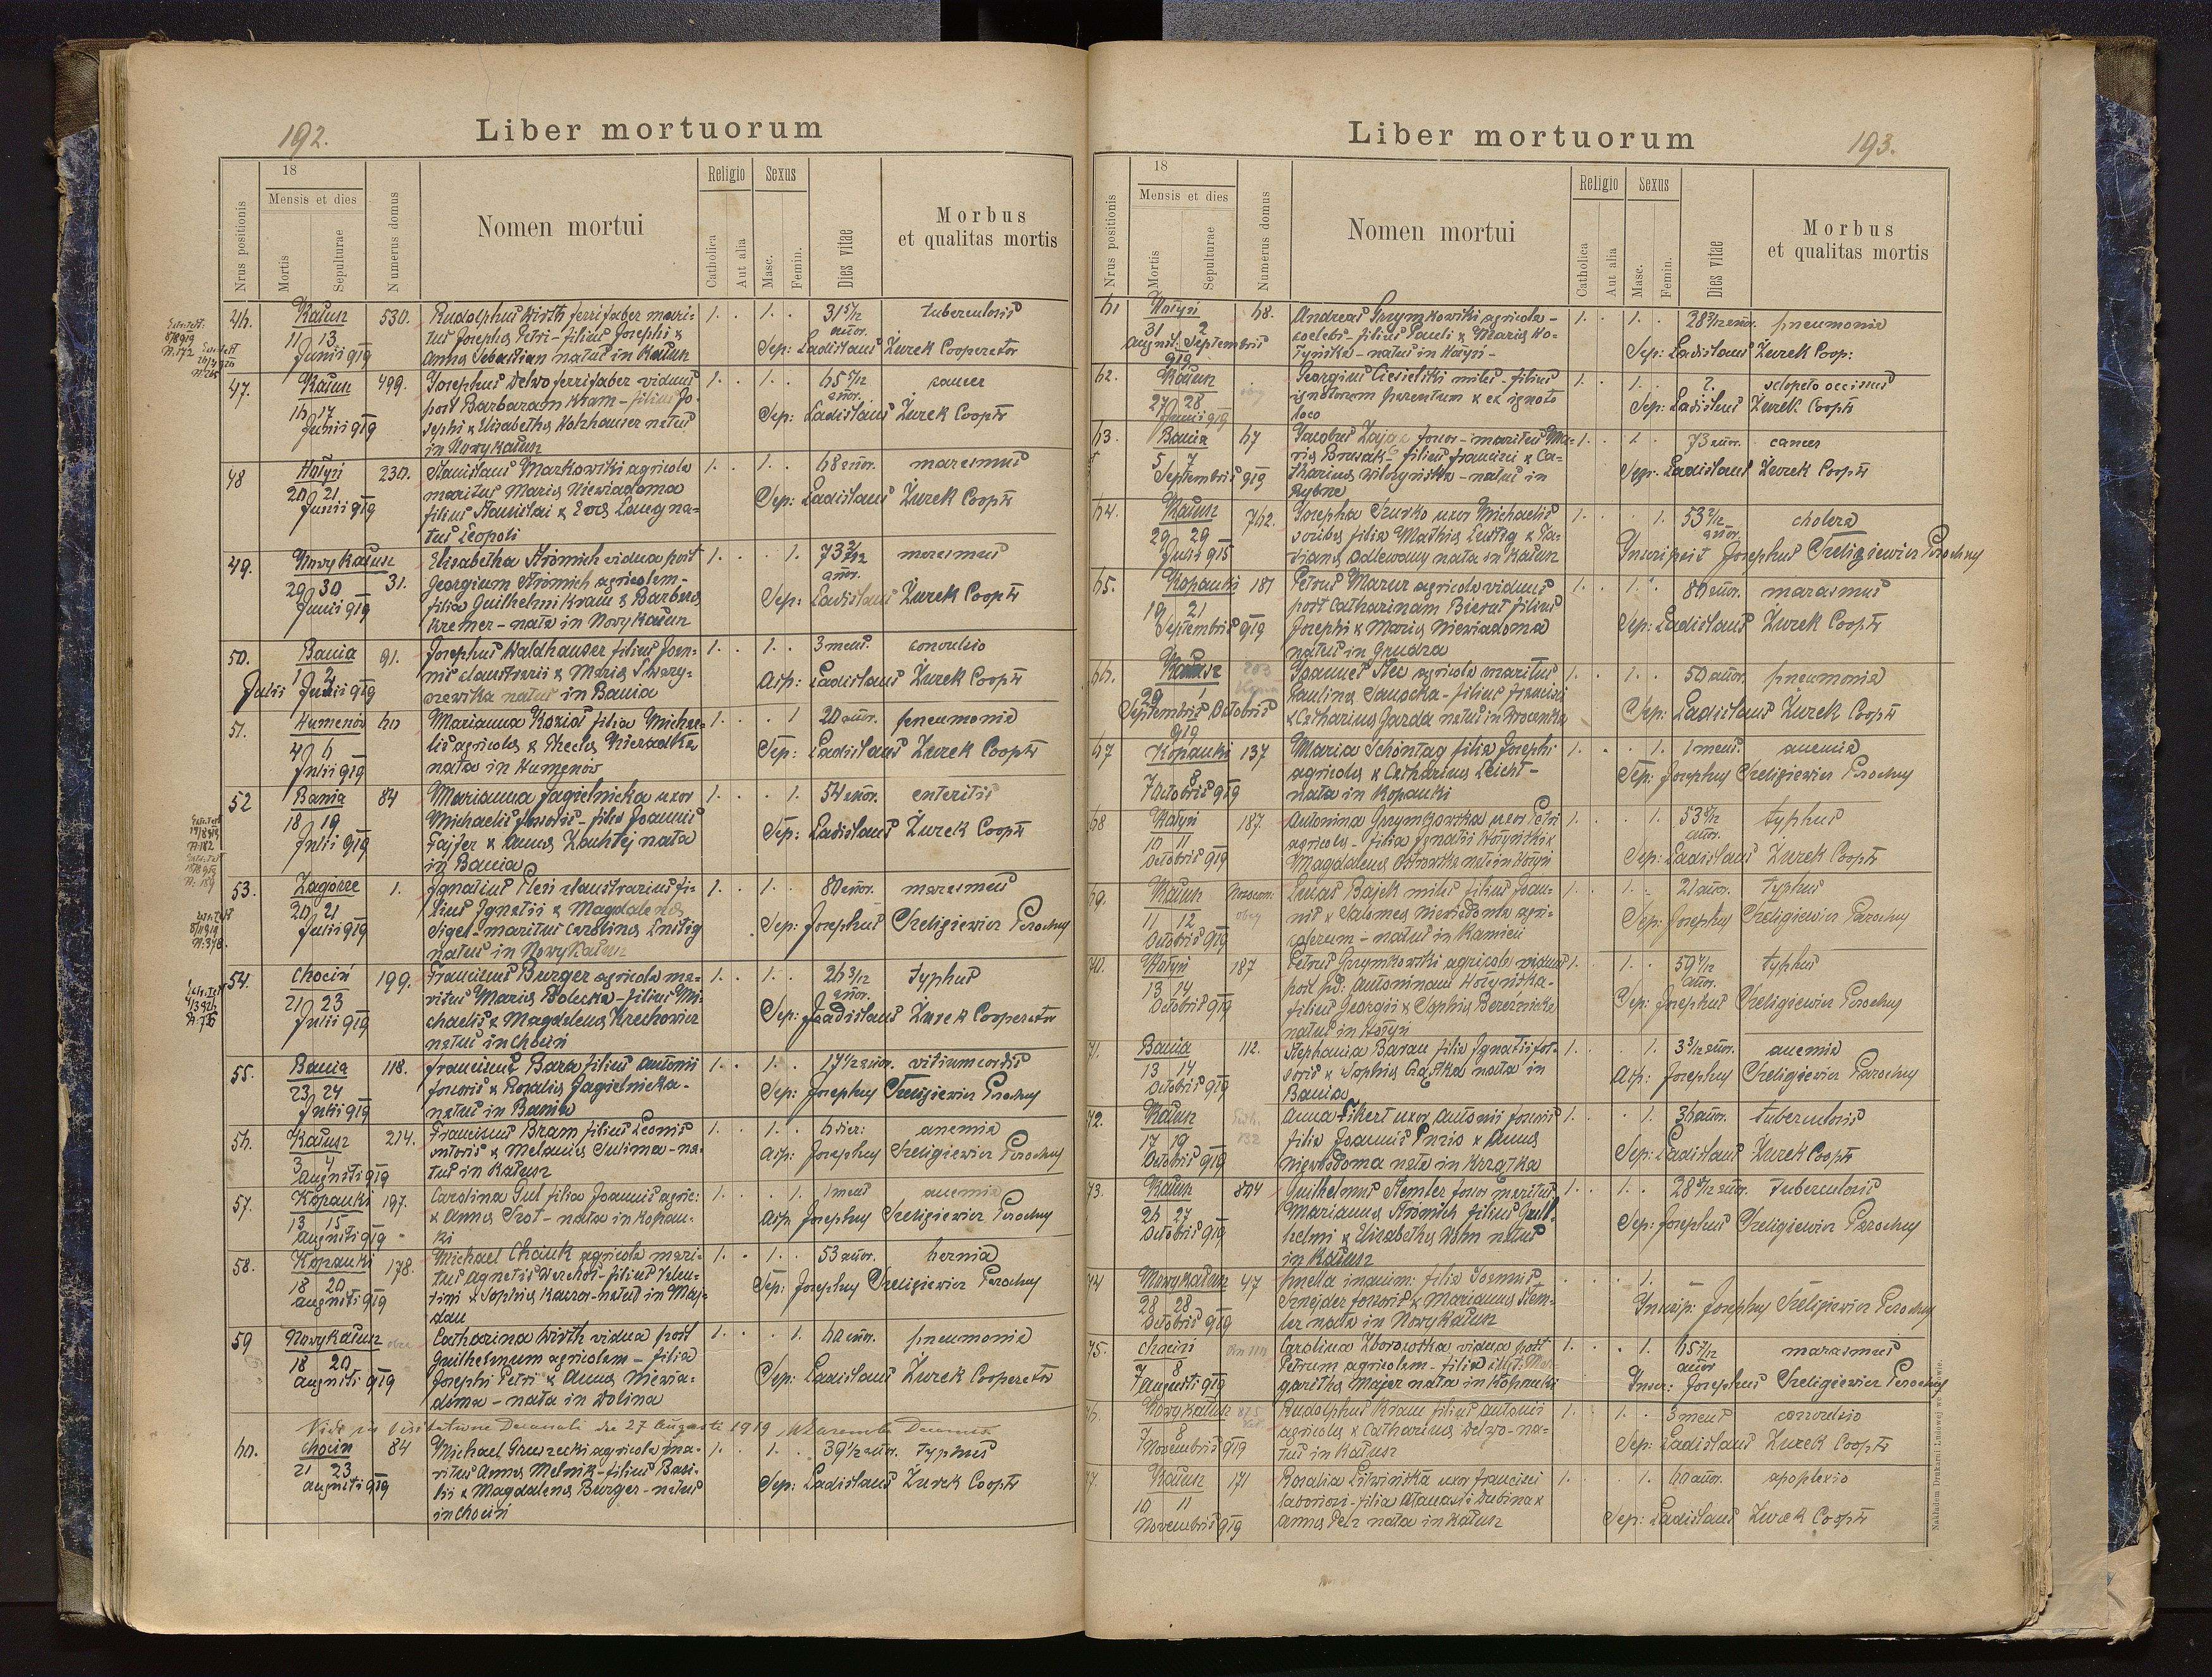 192.
Liber mortuorum
18
Mensis et dies
Religio
Sexus
Nrus positionis
Mortis
Sepulturae
Numerus domus
Nomen mortui
Catholica
Aut alia
Masc.
Femin.
Dies vitae
Morbus
et qualitas mortis
46. Kałusz 530. Rudolphus Wirth ferrifaber mari- 1. 1. 31 5/12 tuberculosis
11 13 tus Josephae Petri - filius Josephi & annor.
Junii 919 Annae Sebastian natus in Kałusz Sep: Ladislaus Żurek Cooperator
47. Kałusz 499. Josephus Delwo ferrifaber viduus 1. 1. 65 5/12 cancer
16 17 post Barbaram Kram - filius Jo- annor.
Junii 919 sephi & Elisabethae Holzhauser natus Sep: Ladislaus Żurek Cooptr
in Nowy Kałusz
48 Hołyń 230. Stanislaus Markowski agricola 1. 1. 68 annor. marasmus
20 21 maritus Mariae Niewiadoma
Junii 919 filius Stanislai & Evae Lang na- Sep: Ladislaus Żurek Cooptr
tus Leopoli
49. Nowy Kałusz Elisabetha Strömich vidua post 1. 1. 73 2/12 marasmus
29 30 31. Georgium Strömich agricolam - annor.
Junii 919 filia Guilhelmi Kraus & Barbarae Sep: Ladislaus Żurek Cooptr
Kremer - nata in Nowy Kałusz
50. Bania 91. Josephus Waldhauser filius Joan- 1. 1. 3 mens. convulsio
1 2 nis claustrarii & Mariae Swary-
Julii Junii 919 czewska natus in Bania Assp: Ladislaus Żurek Cooptr
51. Humenów 60 Marianna Kozioł filia Michae- 1. 1 20 annor. pneumonia
4 6 lis agricolae & Theclae Nieradka
Julii 919 nata in Humenów Sep: Ladislaus Żurek Cooptr
52 Bania 84 Marianna Jagielnicka uxor 1. 1. 54 annor. enteritis
18 19 Michaelis fossoris - filia Joannis
Julii 919 Fajfer & Annae nata Sep: Ladislaus Żurek Cooptr
in Bania
53. Zagórze 1. Ignatius Plesi claustrarius fi- 1. 1. 80 annor. marasmus
20 21 lius Ignatii & Magdalenae
Julii 919 Sigel - maritus Carolinae Sep: Josephus Treligiewicz Parochus
natus in Nowy Kałusz
54. Chocin 199. Franciscus Burger agricola ma- 1. 1. 26 3/12 typhus
21 23 ritus Mariae - filius Mi- annor.
Julii 919 chaelis & Magdalenae Krechowicz Sep: Ladislaus Żurek Cooperator
natus in Chocin
55. Bania 118. Franciscus Bara filius Antonii 1. 1. 17 1/2 annor. vitium cordis
23 24 fossoris & Rosaliae Jagielnicka -
Julii 919 natus in Bania Sep: Josephus Treligiewicz Parochus
56. Kałusz 214. Franciscus Bram filius Leonis 1. 1. 6 dier: anemia
3 4 sutoris & Melaniae Sulima - na-
Augusti 919 tus in Kałusz Assp: Josephus Treligiewicz Parochus
57. Kopanki 197. Carolina Gul filia Joannis agric: 1. 1. 1 mens anemia
13 15 & Annae Trot - nata in Kopan-
Augusti 919 ki Assp. Josephus Treligiewicz Parochus
58. Kopanki 178. Michael agricola mari- 1. 1. 53 annor. hernia
18 20 tus Agnetis - filius Valen-
Augusti 919 tini & Sophiae - natus in Maj- Sep: Josephus Treligiewicz Parochus
dan
59 Nowy Kałusz Catharina Wirth vidua post 1. 1. 60 annor. pneumonia
18 20 Guilhelmum agricolam - filia
Augusti 919 Josephi Petri & Annae Niewia- Sep: Ladislaus Żurek Cooperator
doma - nata in Dolina
Vidi in Visitatione Decanali die 27 Augusti 1919
60. Chocin 84 Michael Gruszecki agricola ma- 1. 1. 39 1/2 annor. typhus
21 23 ritus Annae Melnik - filius Basi-
Augusti 919 lii & Magdalenae Burger - natus Sep: Ladislaus Żurek Cooptr
in Chocin
Liber mortuorum
193.
18
Mensis et dies
Religio
Sexus
Nrus positionis
Mortis
Sepulturae
Numerus domus
Nomen mortui
Catholica
Aut alia
Masc.
Femin.
Dies vitae
Morbus
et qualitas mortis
61 Hołyń 68. Andreas Grzymkowski agricola - 1. 1. 28 3/12 annor. pneumonia
31 2 coelebs - filius Pauli & Mariae Ho-
August. Septembris łyńska - natus in Hołyń - Sep: Ladislaus Żurek Coop:
919
62. Kałusz Georgius Ciesielski miles - filius 1. 1. ? sclopeto occisus
27 28 ignotorum parentum & ex ignoto Sep: Ladislaus Żurek Cooptr
Junii 919 loco
63. Bania 67 Jacobus Zając fossor - maritus Ma- 1. 1. 73 annor. cancer
5 7 riae Brusak - filius Francisci & Ca-
Septembris 919 tharinae Wilczyńska - natus in Sep: Ladislaus Żurek Cooptr
Rybne
64. Kałusz 762. Josepha Szurko uxor Michaelis 1. 1. 53 2/12 cholera
29 29 scribae filia Mathiae & Ta- annor.
Julii 915 tianae nata in Kałusz Inscripsit Josephus Treligiewicz Parochus
65. Kopanki 181 Petrus Mazur agricola viduus 1. 1. 80 annor. marasmus
19 21 post Catharinam Bierut filius
Septembris 919 Josephi & Mariae Niewiadoma Sep: Ladislaus Żurek Cooptr
natus in Grudza
66. 203 Joannes Stec agricola maritus 1. 1. 50 annor. pneumonia
29 1 Paulinae Sanocka - filius Francisci
Septembris Octobris & Catharinae Garda natus in Sep: Ladislaus Żurek Cooptr
919
67 Kopanki 137 Maria Schöntag filia Josephi 1. 1. 1 mens. anemia
7 8 agricolae & Catharinae Leicht -
Octobris 919 nata in Kopanki Sep: Josephus Treligiewicz Parochus
68 Hołyń 187. Antonina Grzymkowska uxor Petri 1. 1. 53 typhus
10 11 agricolae - filia Ignatii Hołyński & annor.
Octobris 919 Magdalenae nata in Hołyń Sep: Ladislaus Żurek Cooptr
69. Kałusz Nosocom: Lucas Bajek miles filius Joan- 1. 1. 21 annor. typhus
11 12 nis & Salomeae Niewiadoma agri-
Octobris 919 colarum - natus in Kamień Sep: Josephus Treligiewicz Parochus
70. Hołyń 187 Petrus Grzymkowski agricola viduus 1. 1. 59 typhus
13 14 post pd: Antoninam Hołyńska - annor.
Octobris 919 filius Georgii & Sophiae Bereźnicka Sep: Josephus Treligiewicz Parochus
natus in Hołyń
71. Bania 112. Stephania Baran filia Ignatii fos- 1. 1. 3 3/12 annor. anemia
13 14 soris & Sophiae nata in
Octobris 919 Bania Assp: Josephus Treligiewicz Parochus
72. Kałusz Anna Fikert uxor Antonii fossoris 1. 1. 36 annor. tuberculosis
17 19 filia Joannis & Annae
Octobris 919 Niewiadoma nata in Sep: Ladislaus Żurek Cooptr
73. Kałusz 804 Guilhelmus Stemler fossor maritus 1. 1. 28 annor. tuberculosis
26 27 Mariannae Strömich filius Guil-
Octobris 919 helmi & Elisabethae natus Sep: Josephus Treligiewicz Parochus
in Kałusz
74 Nowy Kałusz 47 Puella inanim: filia Joannis 1. —
28 28 Sznejder fossoris & Mariannae Stem-
Octobris 919 ler nata in Nowy Kałusz Inscrip: Josephus Treligiewicz Parochus
75. Chocin Carolina Zborowska vidua post 1. 1. 65 7/12 marasmus
7 8 Petrum agricolam - filia Mar- annor
Augusti 919 garithae Majer nata in Kopanki Inscr: Josephus Treligiewicz Parochus
76. Nowy Kałusz 875 Rudolphus Kraus filius Antonii 1. 1. 3 mens convulsio
7 8 agricolae & Catharinae Delwo - na-
Novembris 919 tus in Kałusz Sep: Ladislaus Żurek Cooptr
77. Kałusz 171 Rosalia Litwińska uxor Francisci 1. 1. 60 annor. apoplexio
10 11 laborios. - filia Atanasii Dubina &
Novembris 919 Annae Pelz nata in Kałusz Sep: Ladislaus Żurek Cooptr
Nakładem Drukarni Ludowej we Lwowie.